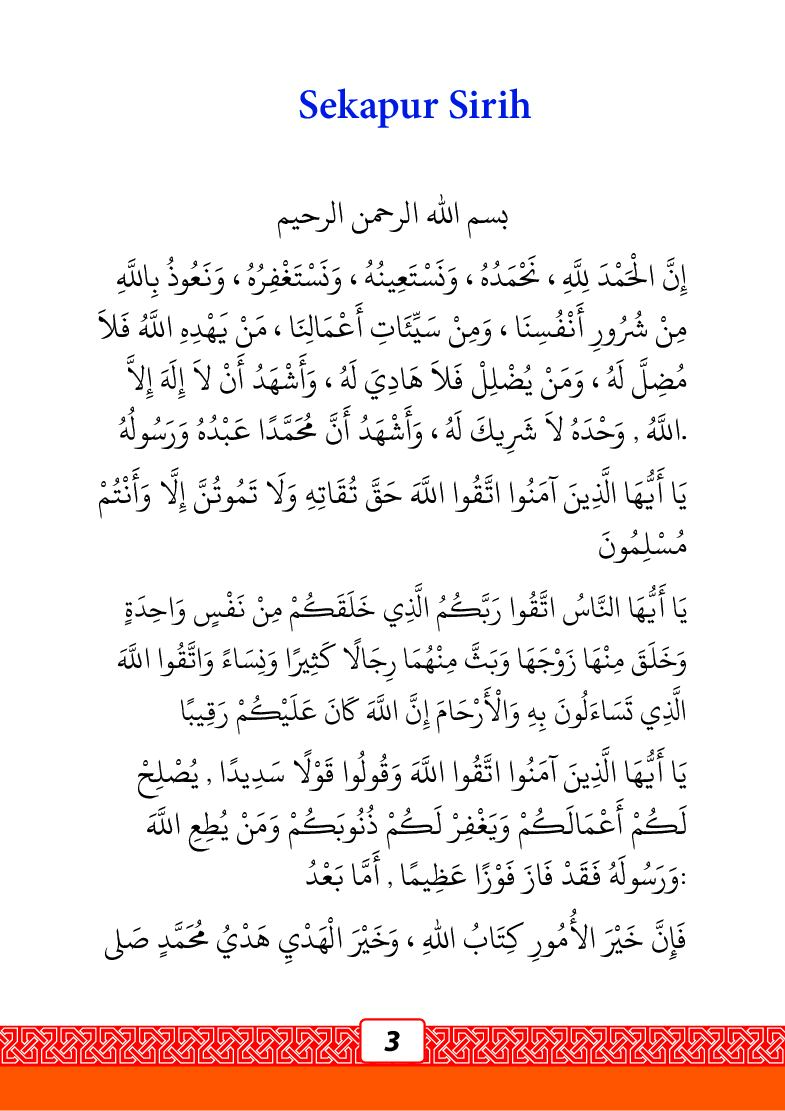 Sekapur Sirih
بسم الله الرحمن الرحيم
إِنَّ الْحَمْدَ لِلَّهِ ، نَحْمَدُهُ ، وَنَسْتَعِينُهُ ، وَنَسْتَغْفِرُهُ ، وَنَعُوذُ بِاللَّهِ
مِنْ شُرُورِ أَنْفُسِنَا ، وَمِنْ سَيِّئَاتِ أَعْمَالِنَا ، مَنْ يَهْدِهِ اللَّهُ فَلاَ
مُضِلَّ لَهُ ، وَمَنْ يُضْلِلْ فَلاَ هَادِيَ لَهُ ، وَأَشْهَدُ أَنْ لاَ إِلَهَ إِلاَّ
.اللَّهُ , وَحْدَهُ لاَ شَرِيكَ لَهُ ، وَأَشْهَدُ أَنَّ مُحَمَّدًا عَبْدُهُ وَرَسُولُهُ
يَا أَيُّهَا الَّذِينَ آمَنُوا اتَّقُوا اللَّهَ حَقَّ تُقَاتِهِ وَلَا تَمُوتُنَّ إِلَّا وَأَنْتُمْ
مُسْلِمُونَ
يَا أَيُّهَا النَّاسُ اتَّقُوا رَبَّكُمُ الَّذِي خَلَقَكُمْ مِنْ نَفْسٍ وَاحِدَةٍ
وَخَلَقَ مِنْهَا زَوْجَهَا وَبَثَّ مِنْهُمَا رِجَالًا كَثِيرًا وَنِسَاءً وَاتَّقُوا اللَّهَ
الَّذِي تَسَاءَلُونَ بِهِ وَالْأَرْحَامَ إِنَّ اللَّهَ كَانَ عَلَيْكُمْ رَقِيبًا
يَا أَيُّهَا الَّذِينَ آمَنُوا اتَّقُوا اللَّهَ وَقُولُوا قَوْلًا سَدِيدًا , يُصْلِحْ
لَكُمْ أَعْمَالَكُمْ وَيَغْفِرْ لَكُمْ ذُنُوبَكُمْ وَمَنْ يُطِعِ اللَّهَ
:وَرَسُولَهُ فَقَدْ فَازَ فَوْزًا عَظِيمًا , أَمَّا بَعْدُ
فَإِنَّ خَيْرَ الأُمُورِ كِتَابُ اللهِ ، وَخَيْرَ الْهَدْيِ هَدْيُ مُحَمَّدٍ صَلى
3